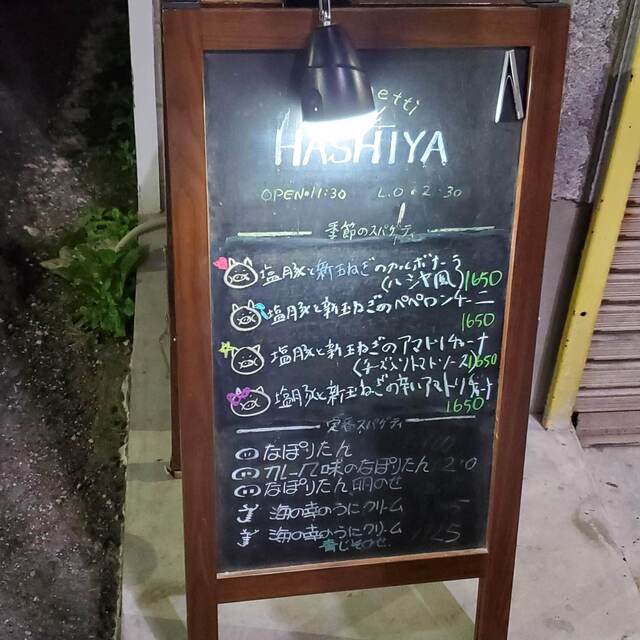 etti
HASHIYA
OPEN・11:30 L.O・2:30
季節のスパゲティ
塩豚と新玉ねぎのカルボナーラ
(ルシヤ風) 1650
塩豚と新玉ねぎのペペロンチーニ
1650
塩豚と新玉ねぎのアマトリチャーナ
(チーズ入りトマトソース) 1650
塩豚と新玉ねぎの辛いアマトリチャーナ
1650
定番スパゲティ
なぽりたん
カレー風味のなぽりたん
なぽりたん、卵のせ
海の幸のうにクリーム
海の幸のうにクリーム
青じそのせ